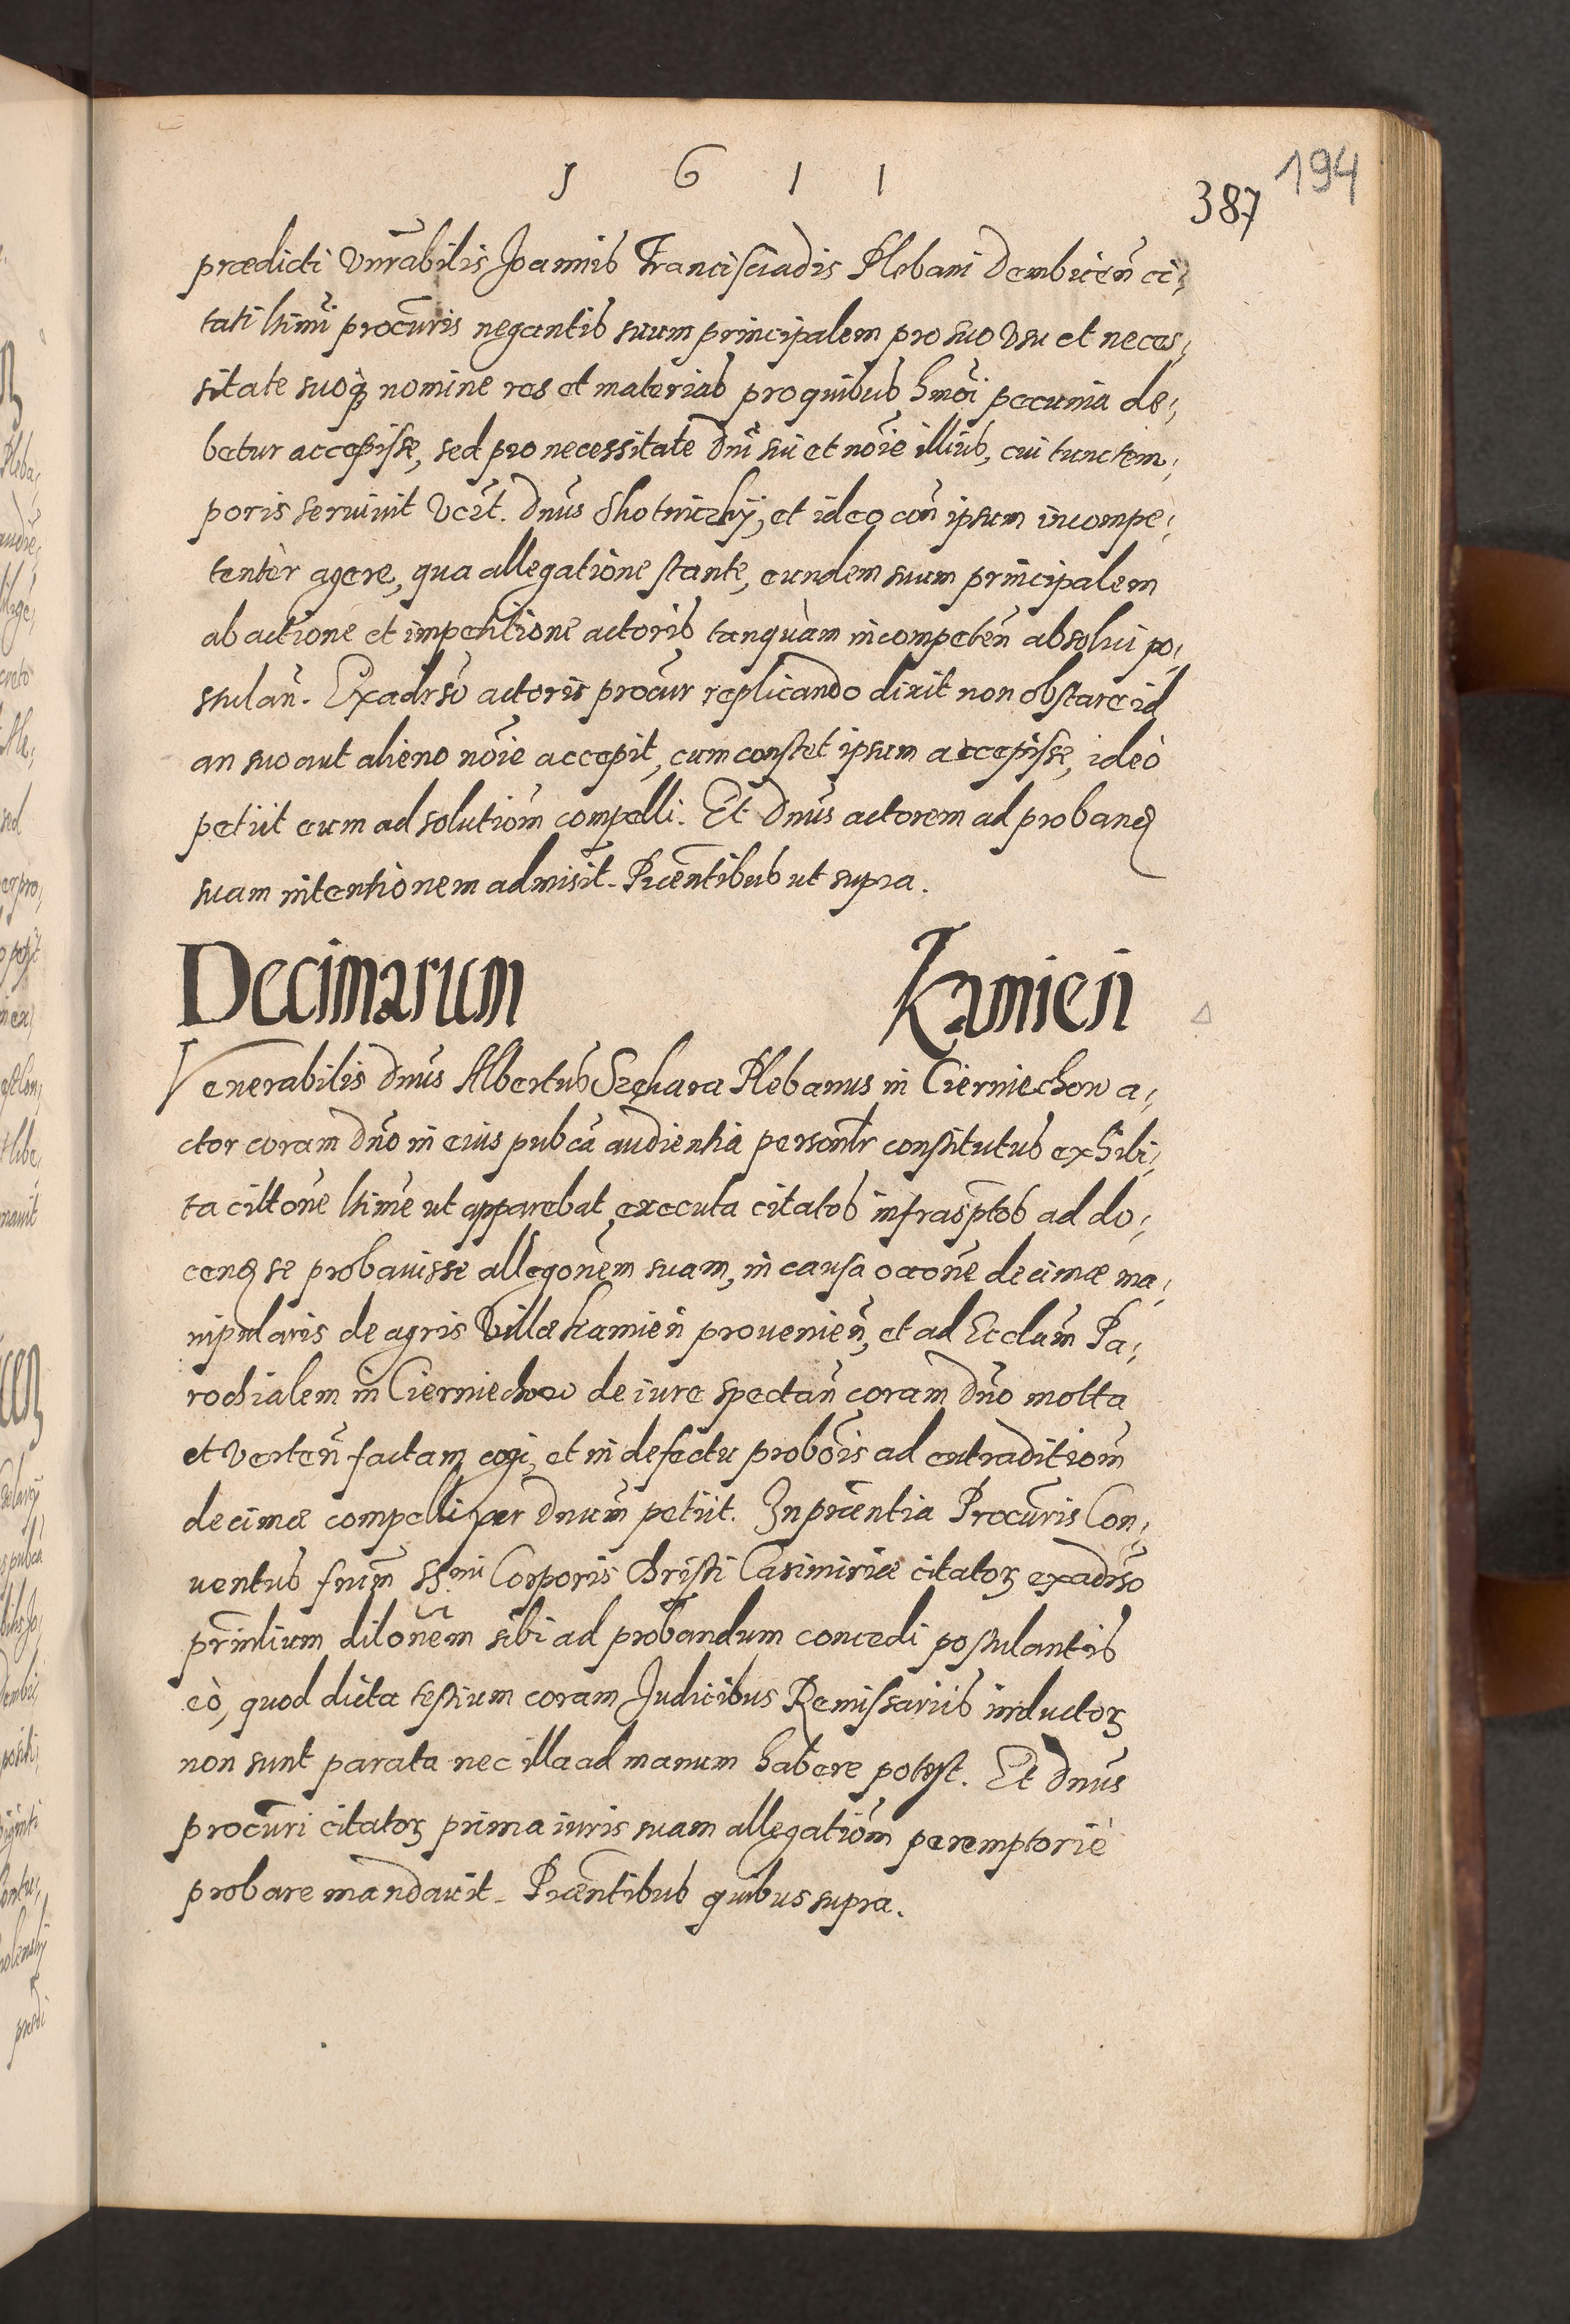 1 6 1 1
387 194
prædicti Vnrãbilis Joannis Francisciadis Plebani Dembicen̄ ci-
tati ltimi procuris negantis suum principalem pro suo Vsu et neces-
sitate suoq; nomine res et materias pro quibus hmoi pecunia de-
betur accepisse, sed pro necessitate Dni sui et noīe illius, cui tunc tem-
poris seruiuit Vert. Dnus Skotniczkÿ, et ideo con̄ ipsum incompe-
tentèr agere, qua allegatione stante, eundem suum principalem
ab actione et impetitione actoris tanquàm incompeten̄ absolui po-
stulan̄. Ex adrso actoris procur replicando dixit non obstare id
an suo aut alieno noīe accepit, cum constet ipsum accepisse, ideò
petiit eum ad solutiom̄ compelli. Et Dnūs actorem ad proband
suam intentionem admisit. Pñtibus ut supra.
Decimarum Kamien
Venerabilis Dnūs Albertus Szekara Plebanus in Cierniechow a-
ctor coram Dnō in eius pubca audientia personlr constitutus exhibi-
ta cittone ltime ut apparebat executa citatos infrasptos ad do-
cend se probauisse allegonem suam, in causa oc̄one decimæ ma-
nipularis de agris Villæ Kamien prouenien̄, et ad Eccliam Pa-
rochialem in Cierniechow de iure spectan̄ coram Dno mota
et Verten̄ factam cogi, et in defectu probōis ad extraditiom̄
decimæ compelli per Dnum petiit. In pñtia Procuris Con-
uentus frum SSmi Corporis Christi Casimiriæ citator exadrso
primum dilonem sibi ad probandum concedi postulantis
eò, quod dicta testium coram Judicibus Remissariis inductor
non sunt parata nec illa ad manum habere potest. Et Dnūs
procuri citator prima iuris suam allegatiom̄ peremptoriè
probare mandauit. Pñtibus quibus supra.